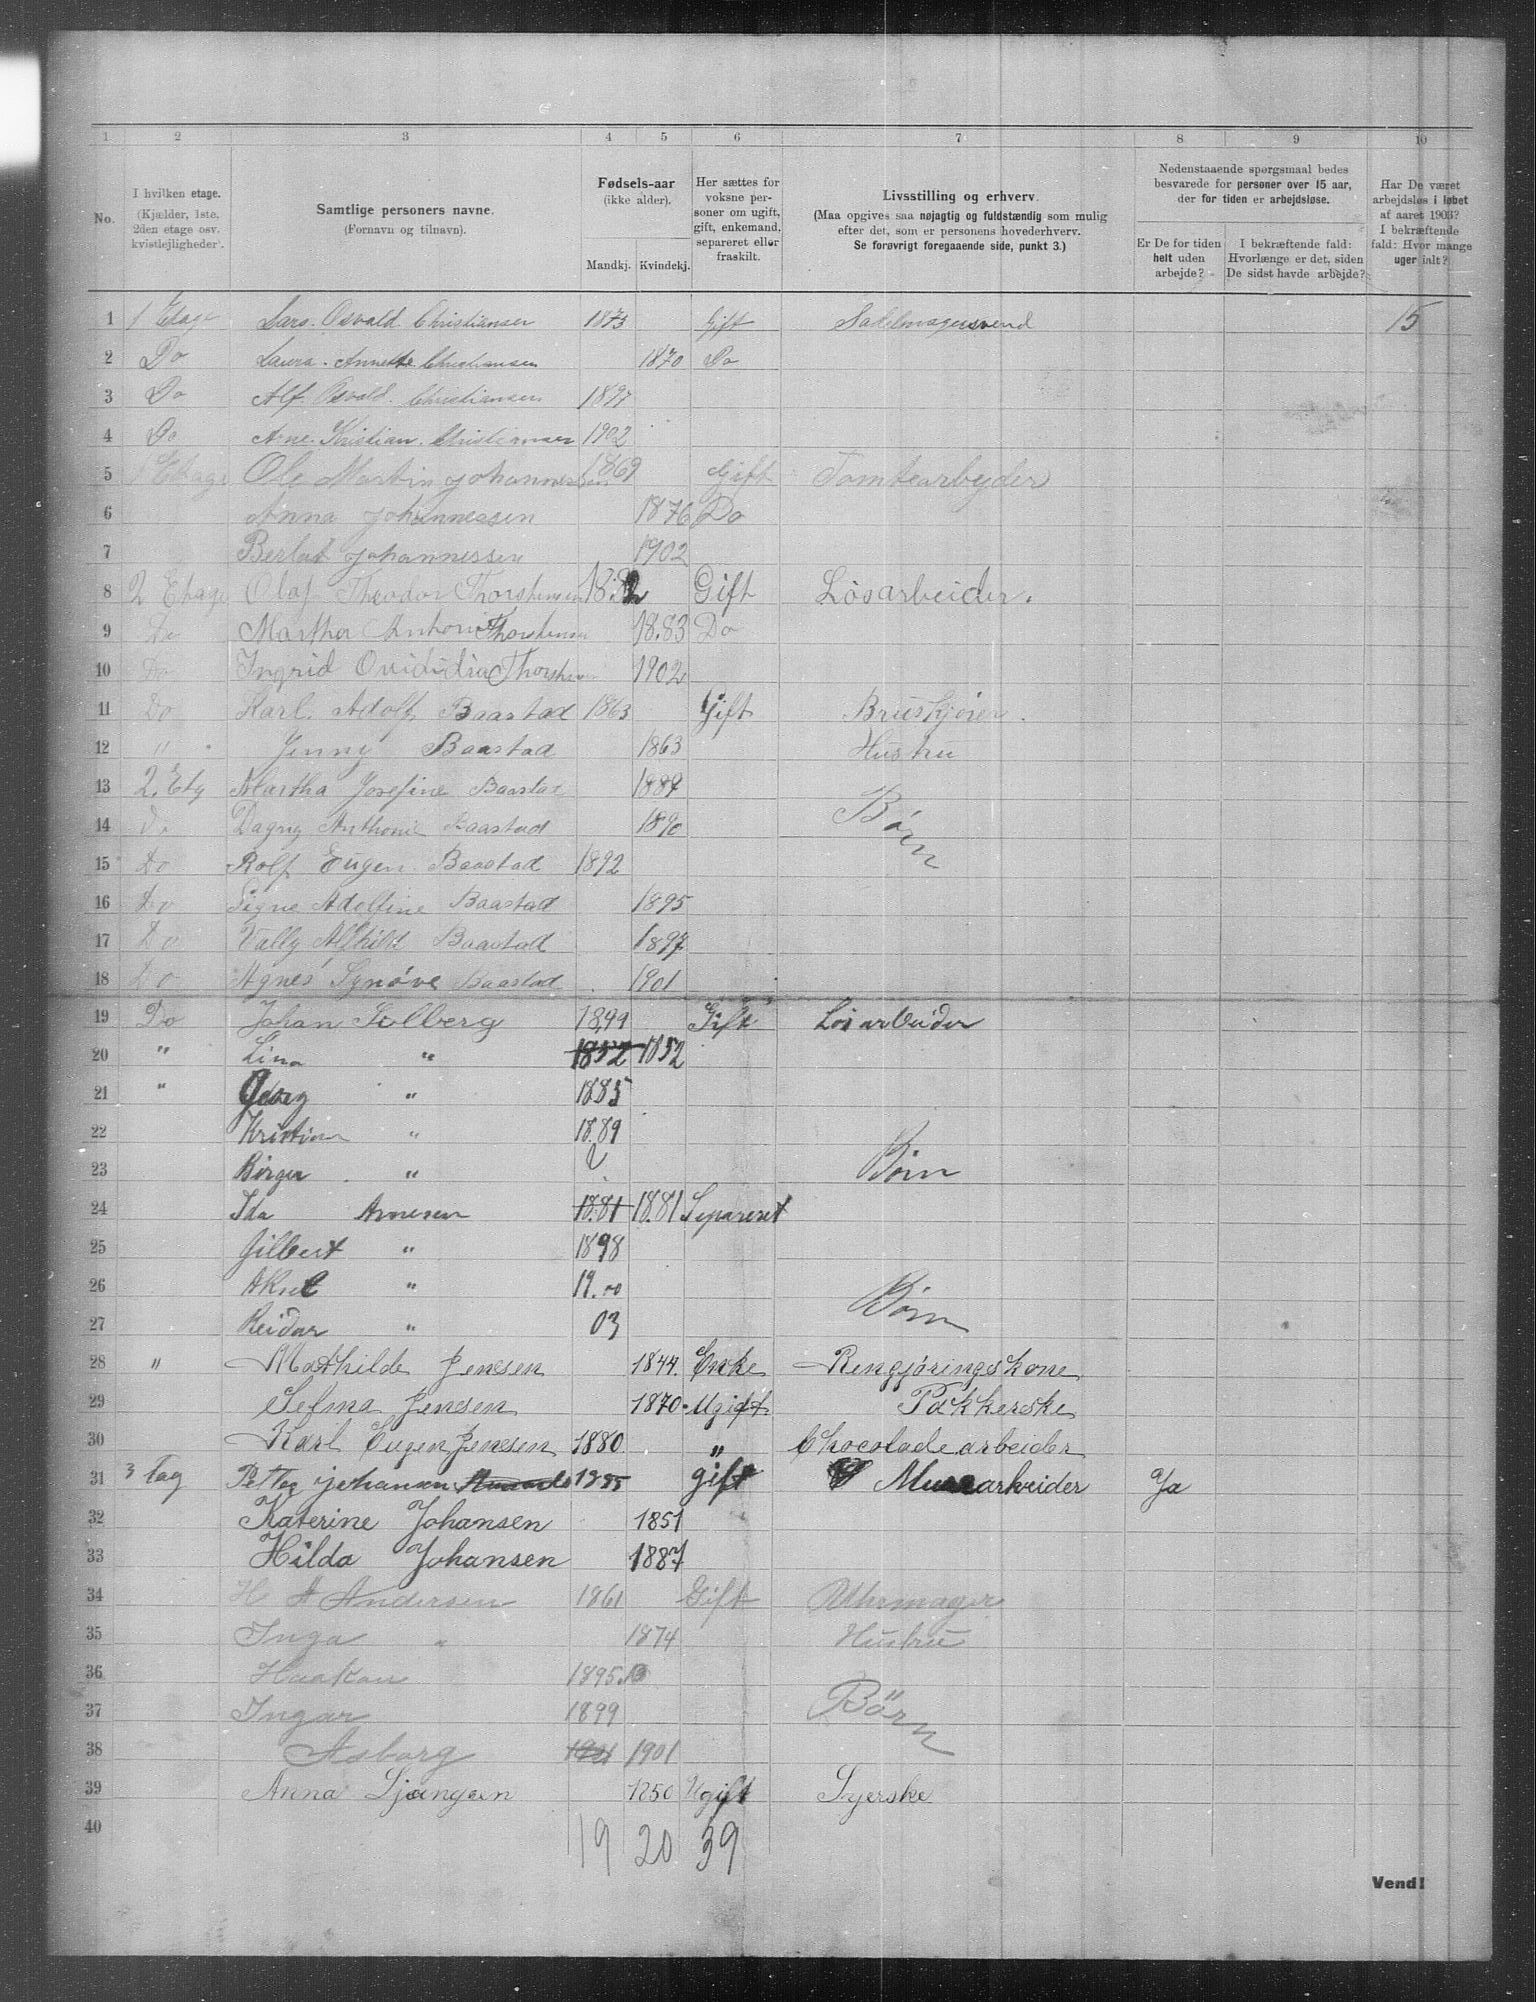 1 2 3 4 5 6 7 8 9 10
No. I hvilken etage. (Kjælder, 1ste, 2den etage osv. kvistlejligheder). Samtlige personers navne. (Fornavn og tilnavn). Fødsels-aar (ikke alder). Mandkj. Kvindekj. Her sættes for voksne personer om ugift, gift, enkemand, separeret eller fraskilt. Livsstilling og erhverv. (Maa opgives saa nøjagtig og fuldstændig som mulig efter det, som er personens hovederhverv. Se forøvrigt foregaaende side, punkt 3.) Nedenstaaende spørgsmaal bedes besvarede for personer over 15 aar, der for tiden er arbejdsløse. Er De for tiden helt uden arbejde? I bekræftende fald: Hvorlænge er det, siden De sidst havde arbejde? Har De været arbejdsløs i løbet af aaret 1903? I bekræftende fald: Hvor mange uger ialt?
1 1 Etage Lars. Osvald Christiansen 1873 Gift Sadelmagersvend 15
2 Do Laura. Annette Christiansen 1870 Do
3 Do Alf. Osvald. Christiansen 1897
4 Do Arne. Kristian. Christiansen 1902
5 1 Etage Ole Martin Johannessen 1869 Gift Tomtearbejder
6 Anna Johannessen 1876 Do
7 Johannessen 1902
8 2 Etage Olaf Theodor Thorstensen 1882 Gift Lösarbeider.
9 Do Martha Antoni Thorstensen 18.83 Do
10 Do Ingrid Thorstensen 1902
11 Do Karl. Adolf Baastad 1863 Gift Bruskjører.
12 " Jenny Baastad 1863 Hustru
13 2. Etg Martha Josefine Baastad 1887
14 Do Dagny Anthonie Baastad 1890 Børn
15 Do Rolf Eugen Baastad 1892
16 Do Signe Adolfine Baastad 1895
17 Do Vally Alfhild Baastad 1897
18 Do Agnes Synöve Baastad 1901
19 Do Johan Solberg 1849 Gift Løsarbeider
20 " Lina " 1852 1852
21 " Georg " 1885
22 Kristian " 18.89
23 Birger " Børn
24 Ida Arnesen 18.81 18.81 Separeret
25 Gilbert " 1898
26 " 19.00 Børn
27 Reidar " 03
28 " Mathilde Jensen 1844. Enke Rengjøringskone
29 Selma Jensen 1870 Ugift Pakkerske
30 Karl Eugen Jensen 1880 " Chocoladearbeider
31 3 tag Petter Johansen 1855 gift Murarbeider Ja
32 Katerine Johansen 1851
33 Hilda Johansen 1887
34 H A Andersen 1861 Gift Uhrmager
35 Inga " 1874 Hustru
36 Haakon 1895
37 Ingar 1899 Börn
38 Asborg 1901 1901
39 Anna 1850 Ugift Syerske
40 19 20 39
Vend!